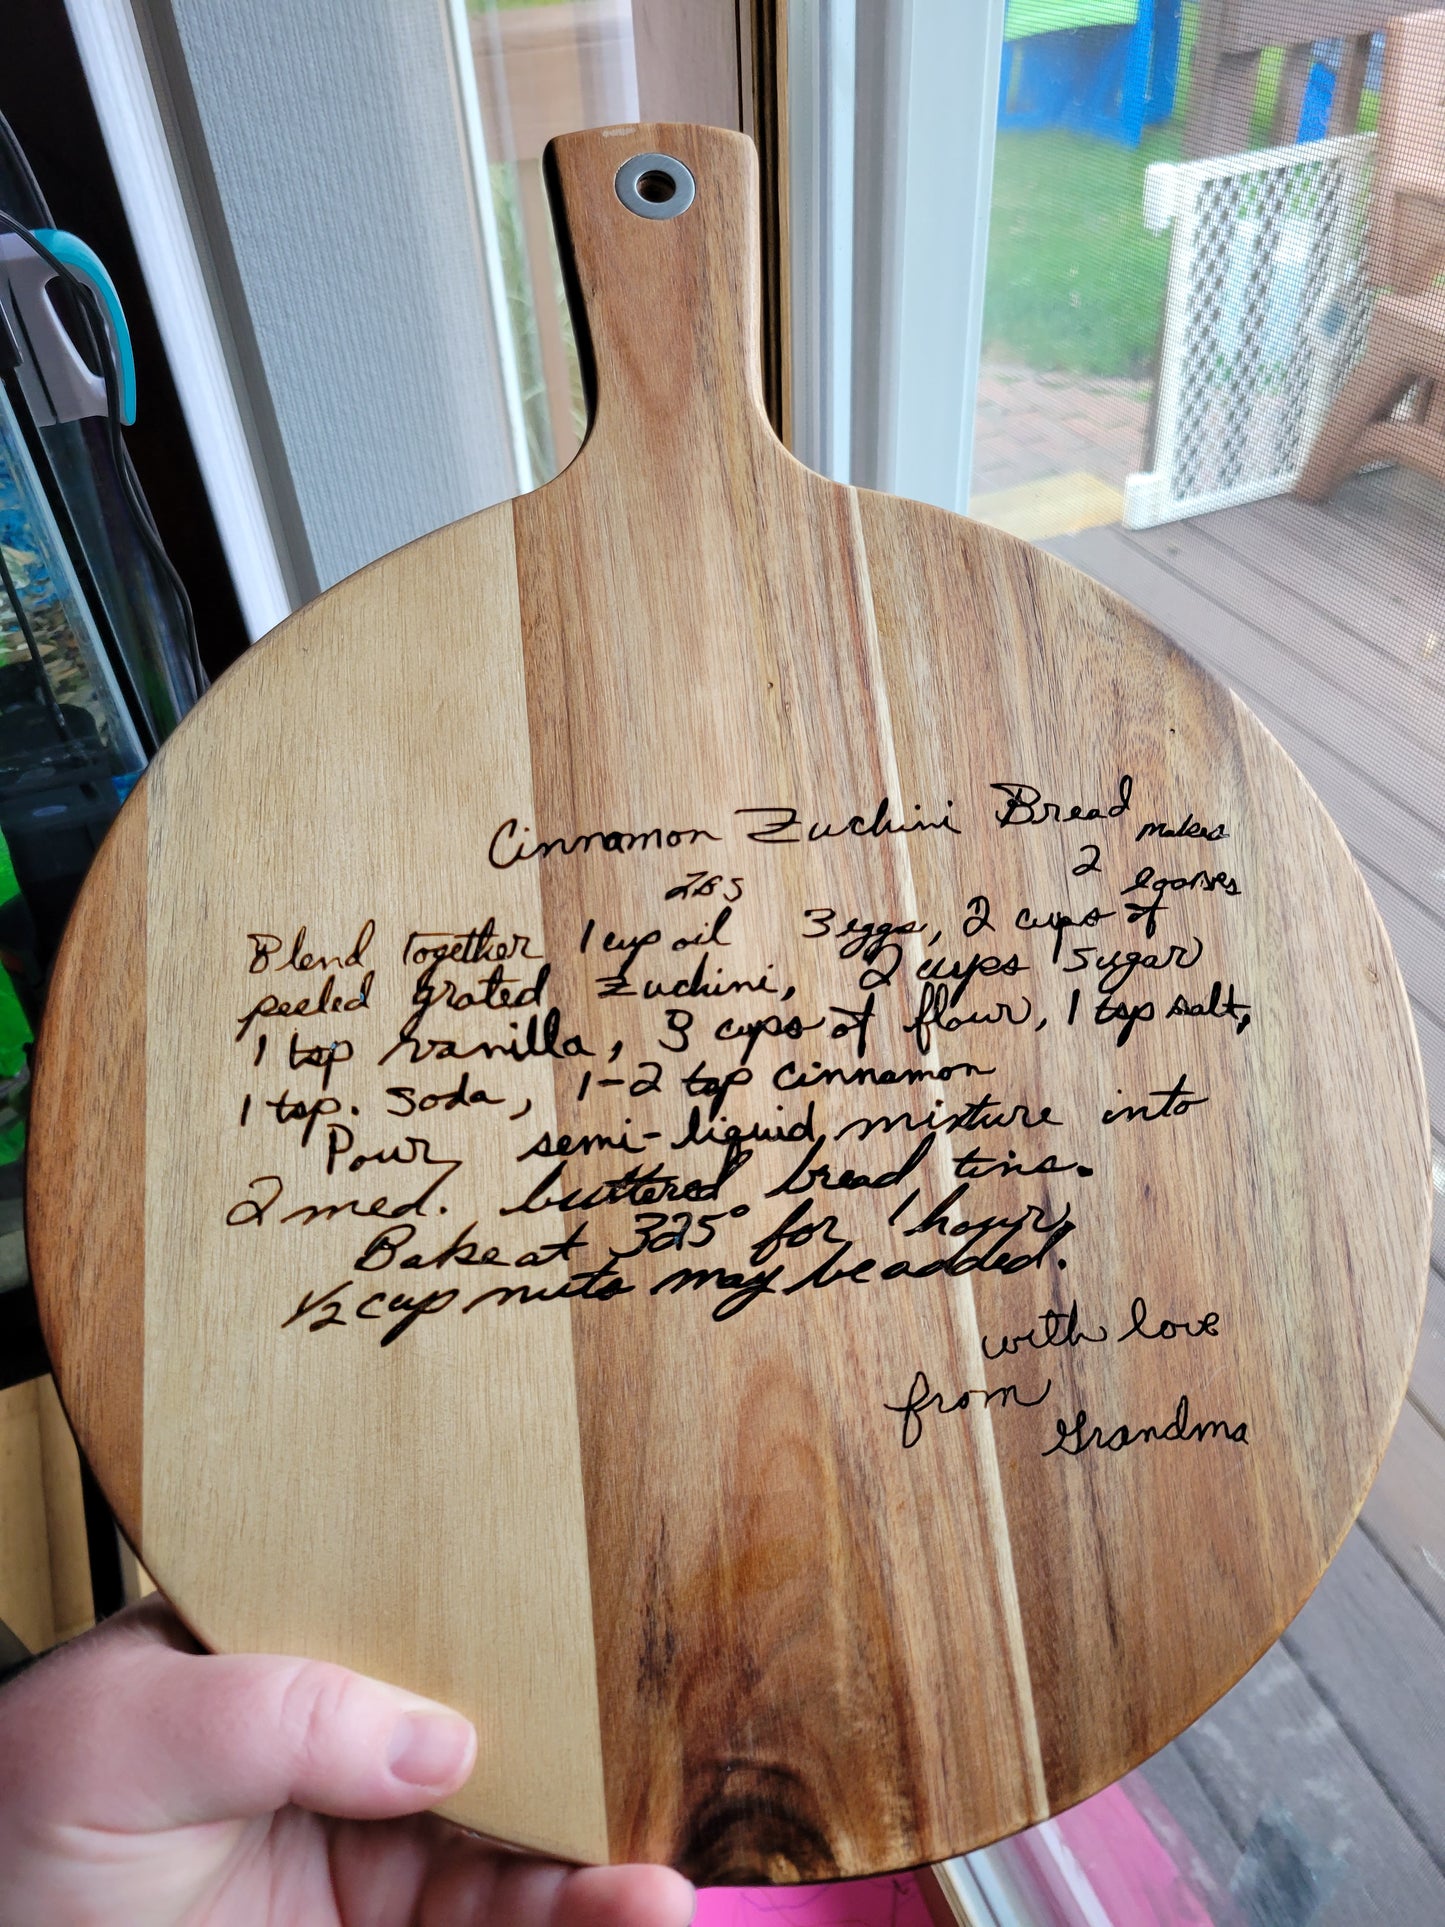 Cinnamon Zuchini Bread makes
2 loaves
Blend together 1 cup oil 3 eggs, 2 cups of
peeled grated Zuchini, 2 cups sugar
1 tsp vanilla, 3 cups of flour, 1 tsp salt,
1 tsp. soda, 1-2 tsp cinnamon
Pour semi-liquid mixture into
2 med. buttered bread tins.
Bake at 325° for 1 hour,
1/2 cup nuts may be added.
with love
from
Grandma